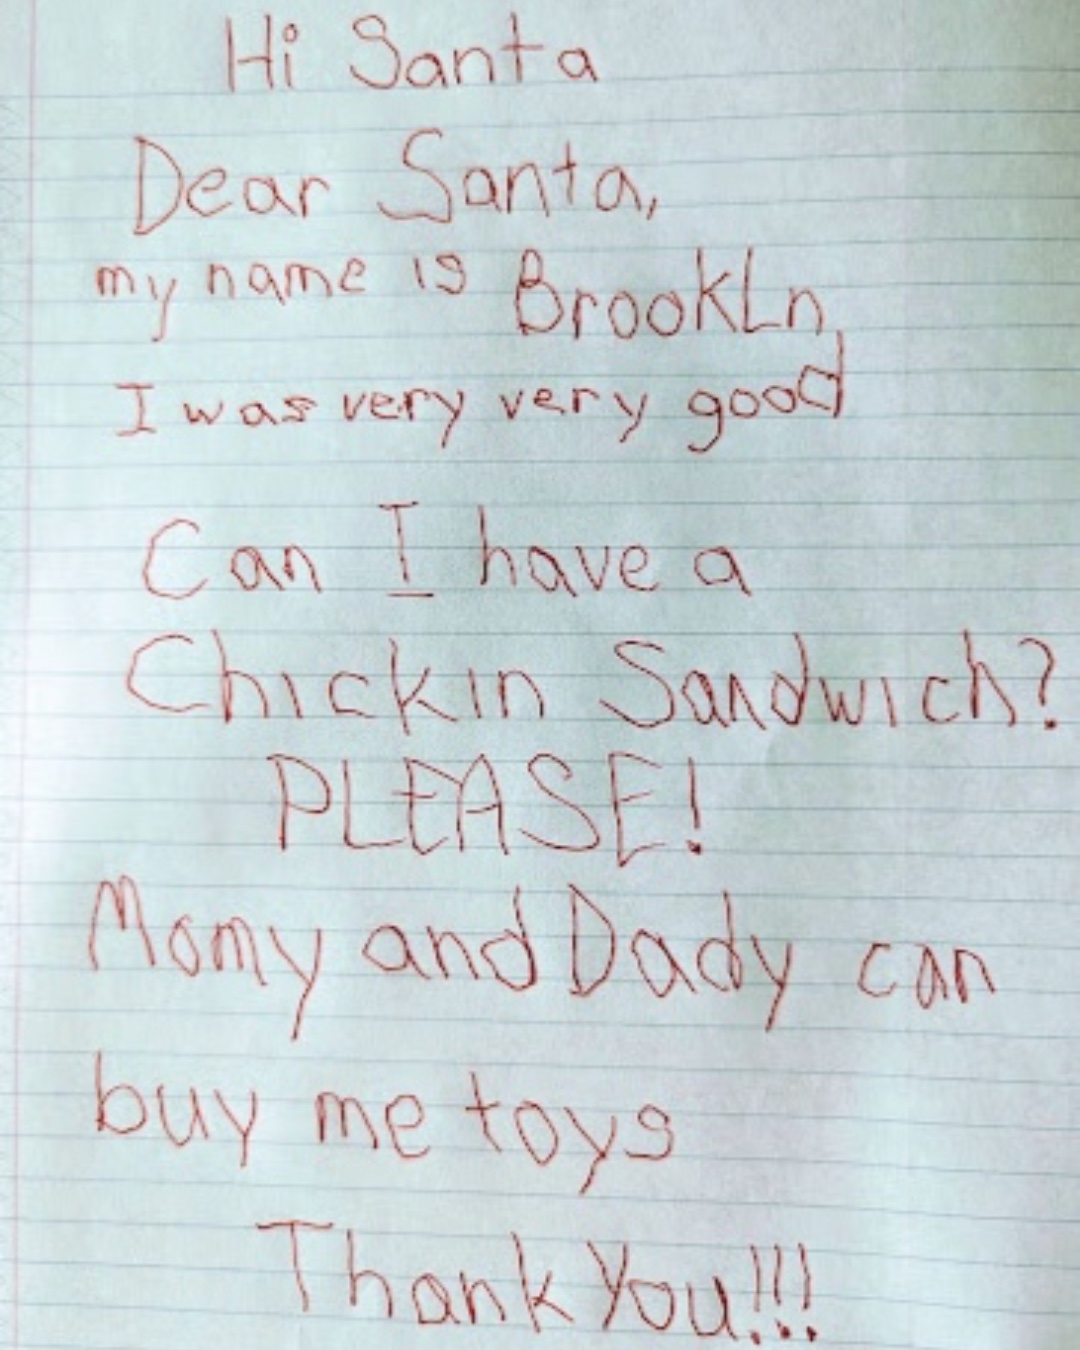 Hi Santa
Dear Santa,
my name is BrookLn,
I was very very good
Can I have a
Chickin Sandwich?
PLEASE!
Momy and Dady can
buy me toys
Thank You!!!